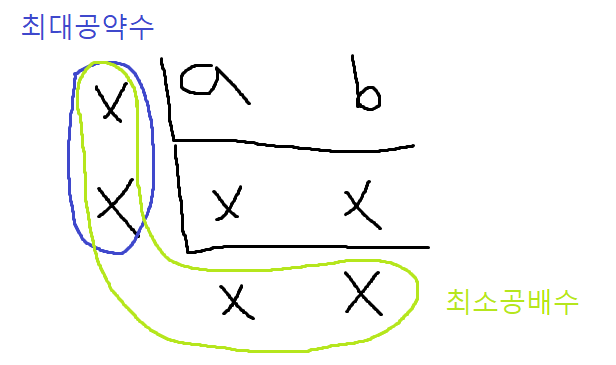 최대공약수
a b
x
x x x
x x
최소공배수